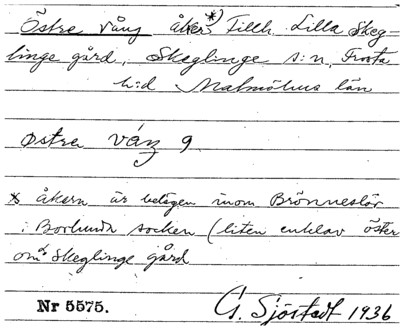 Östra vång åker *) Tillh. Lilla Skeg-
linge gård, Skeglinge s:n, Frosta
h:d Malmöhus län
östra våŋ 9
* åkern är belägen inom Brönneslöv
i Borlunda socken (liten enklav öster
om Skeglinge gård
Nr 5575. G. Sjöstedt 1936